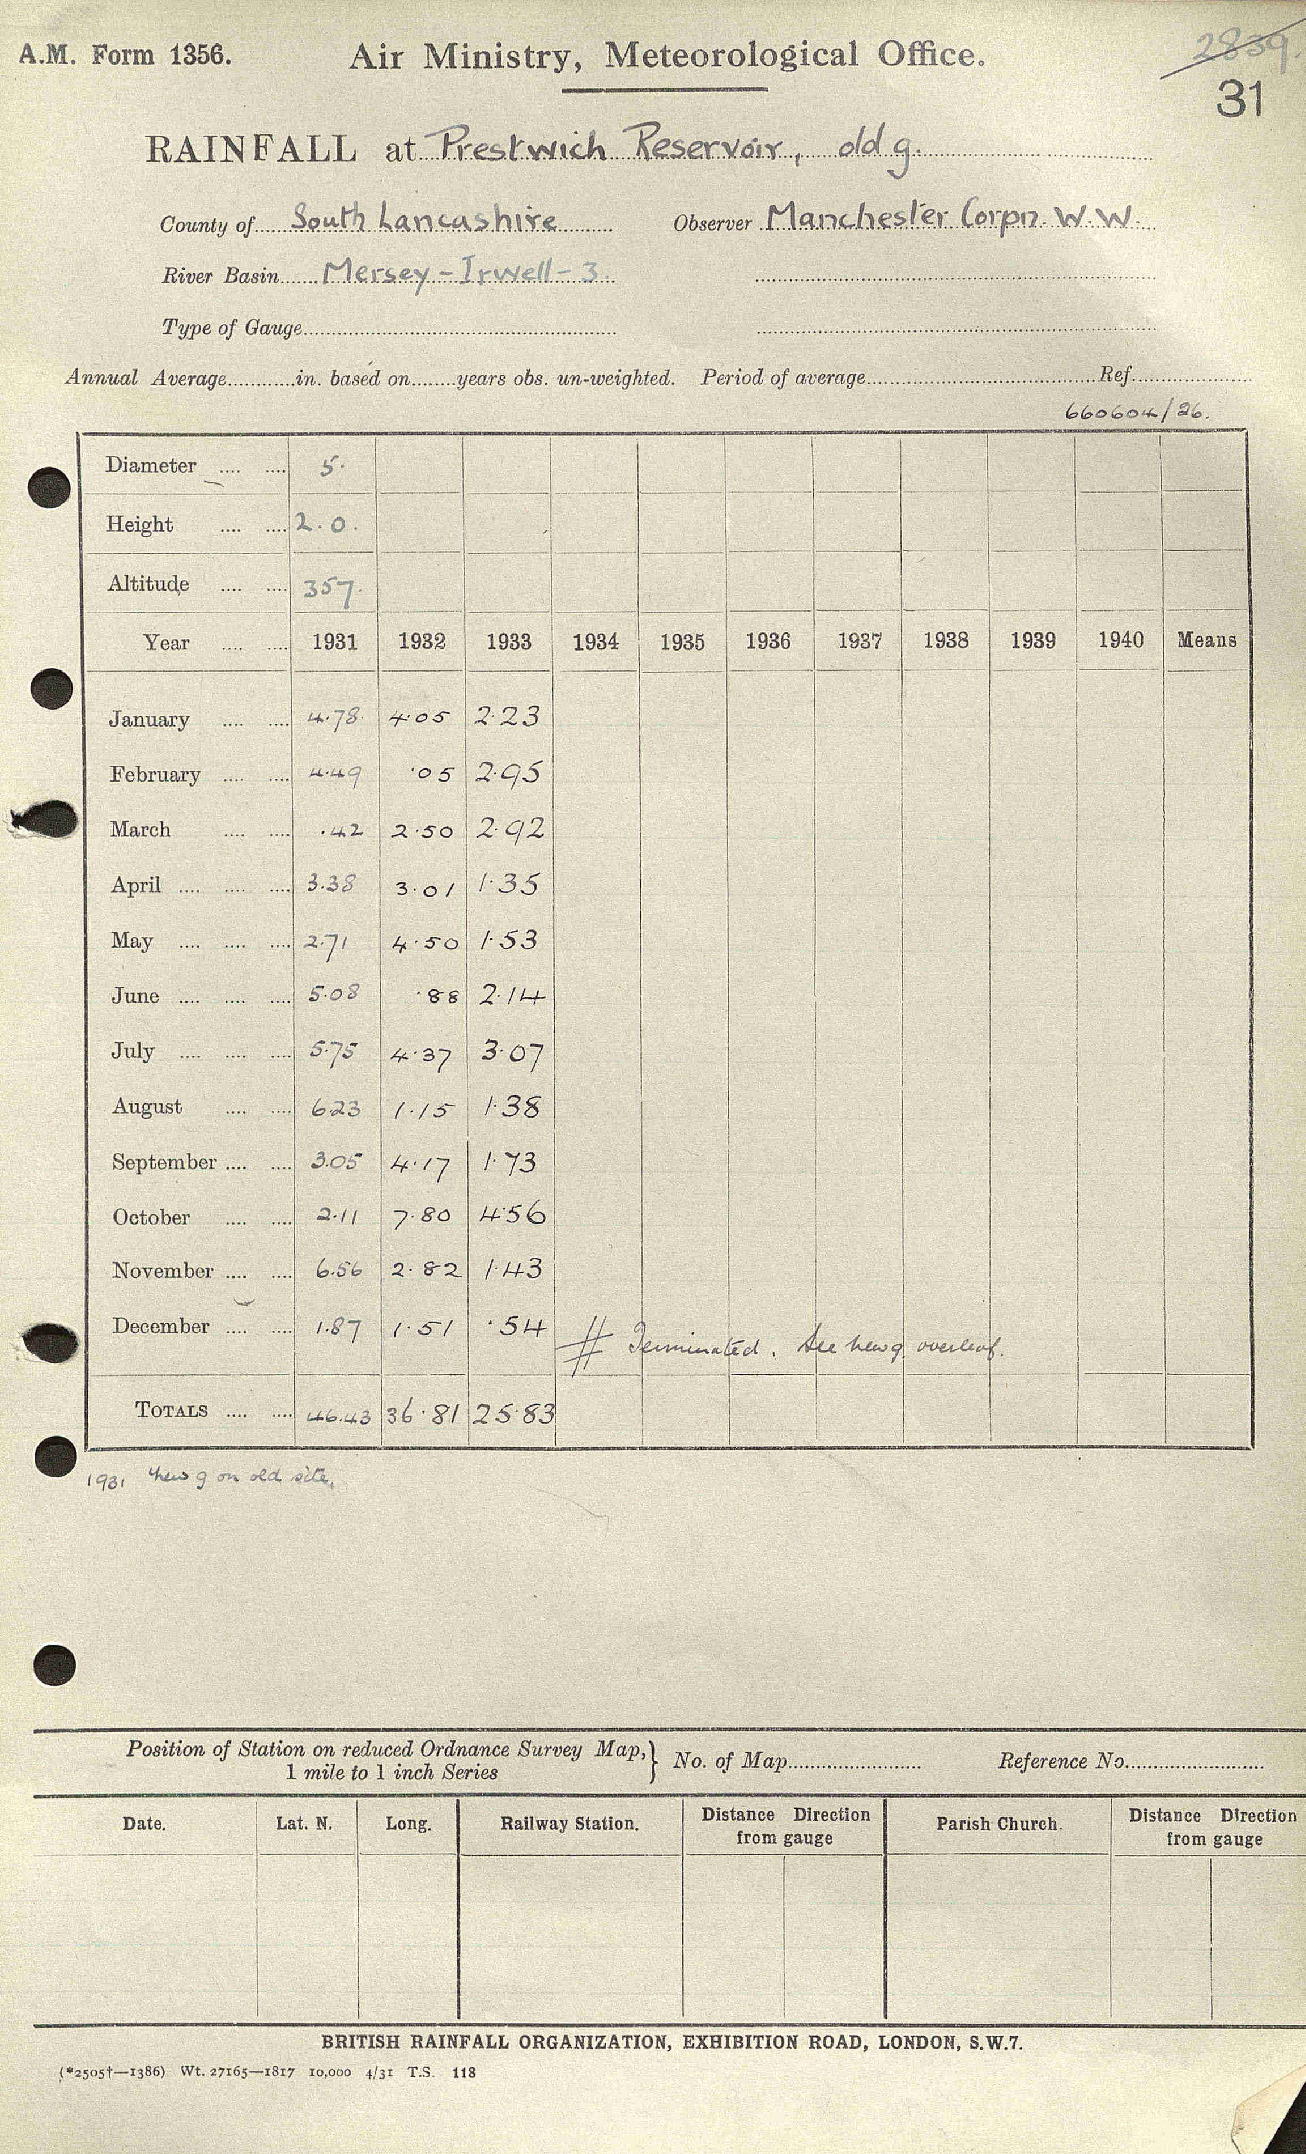 A.M. Form 1356. Air Ministry, Meteorological Office. 2839.
31
RAINFALL at Prestwich Reservoir, old g.
County of South Lancashire Observer Manchester Corpn. W.W.
River Basin Mersey-Irwell-3.
Type of Gauge
Annual Average in. based on years obs. un-weighted. Period of average Ref.
660604/26.
Diameter .... .... 5.
Height .... .... 2.0.
Altitude .... .... 357.
Year .... .... 1931 1932 1933 1934 1935 1936 1937 1938 1939 1940 Means
January .... .... 4.78 4.05 2.23
February .... .... 4.49 .05 2.95
March .... .... .42 2.50 2.92
April .... .... .... 3.38 3.01 1.35
May .... .... .... 2.71 4.50 1.53
June .... .... .... 5.08 .88 2.14
July .... .... .... 5.75 4.37 3.07
August .... .... 6.23 1.15 1.38
September .... .... 3.05 4.17 1.73
October .... .... 2.11 7.80 4.56
November .... .... 6.56 2.82 1.43
December .... .... 1.87 1.51 .54
# Terminated. See new g. overleaf.
TOTALS .... .... 46.43 36.81 25.83
1931 New g on old site.
Position of Station on reduced Ordnance Survey Map, } No. of Map Reference No.
1 mile to 1 inch Series
Date. Lat. N. Long. Railway Station. Distance Direction from gauge Parish Church. Distance Direction from gauge
BRITISH RAINFALL ORGANIZATION, EXHIBITION ROAD, LONDON, S.W.7.
(*2505†—1386) Wt. 27165—1817 10,000 4/31 T.S. 118